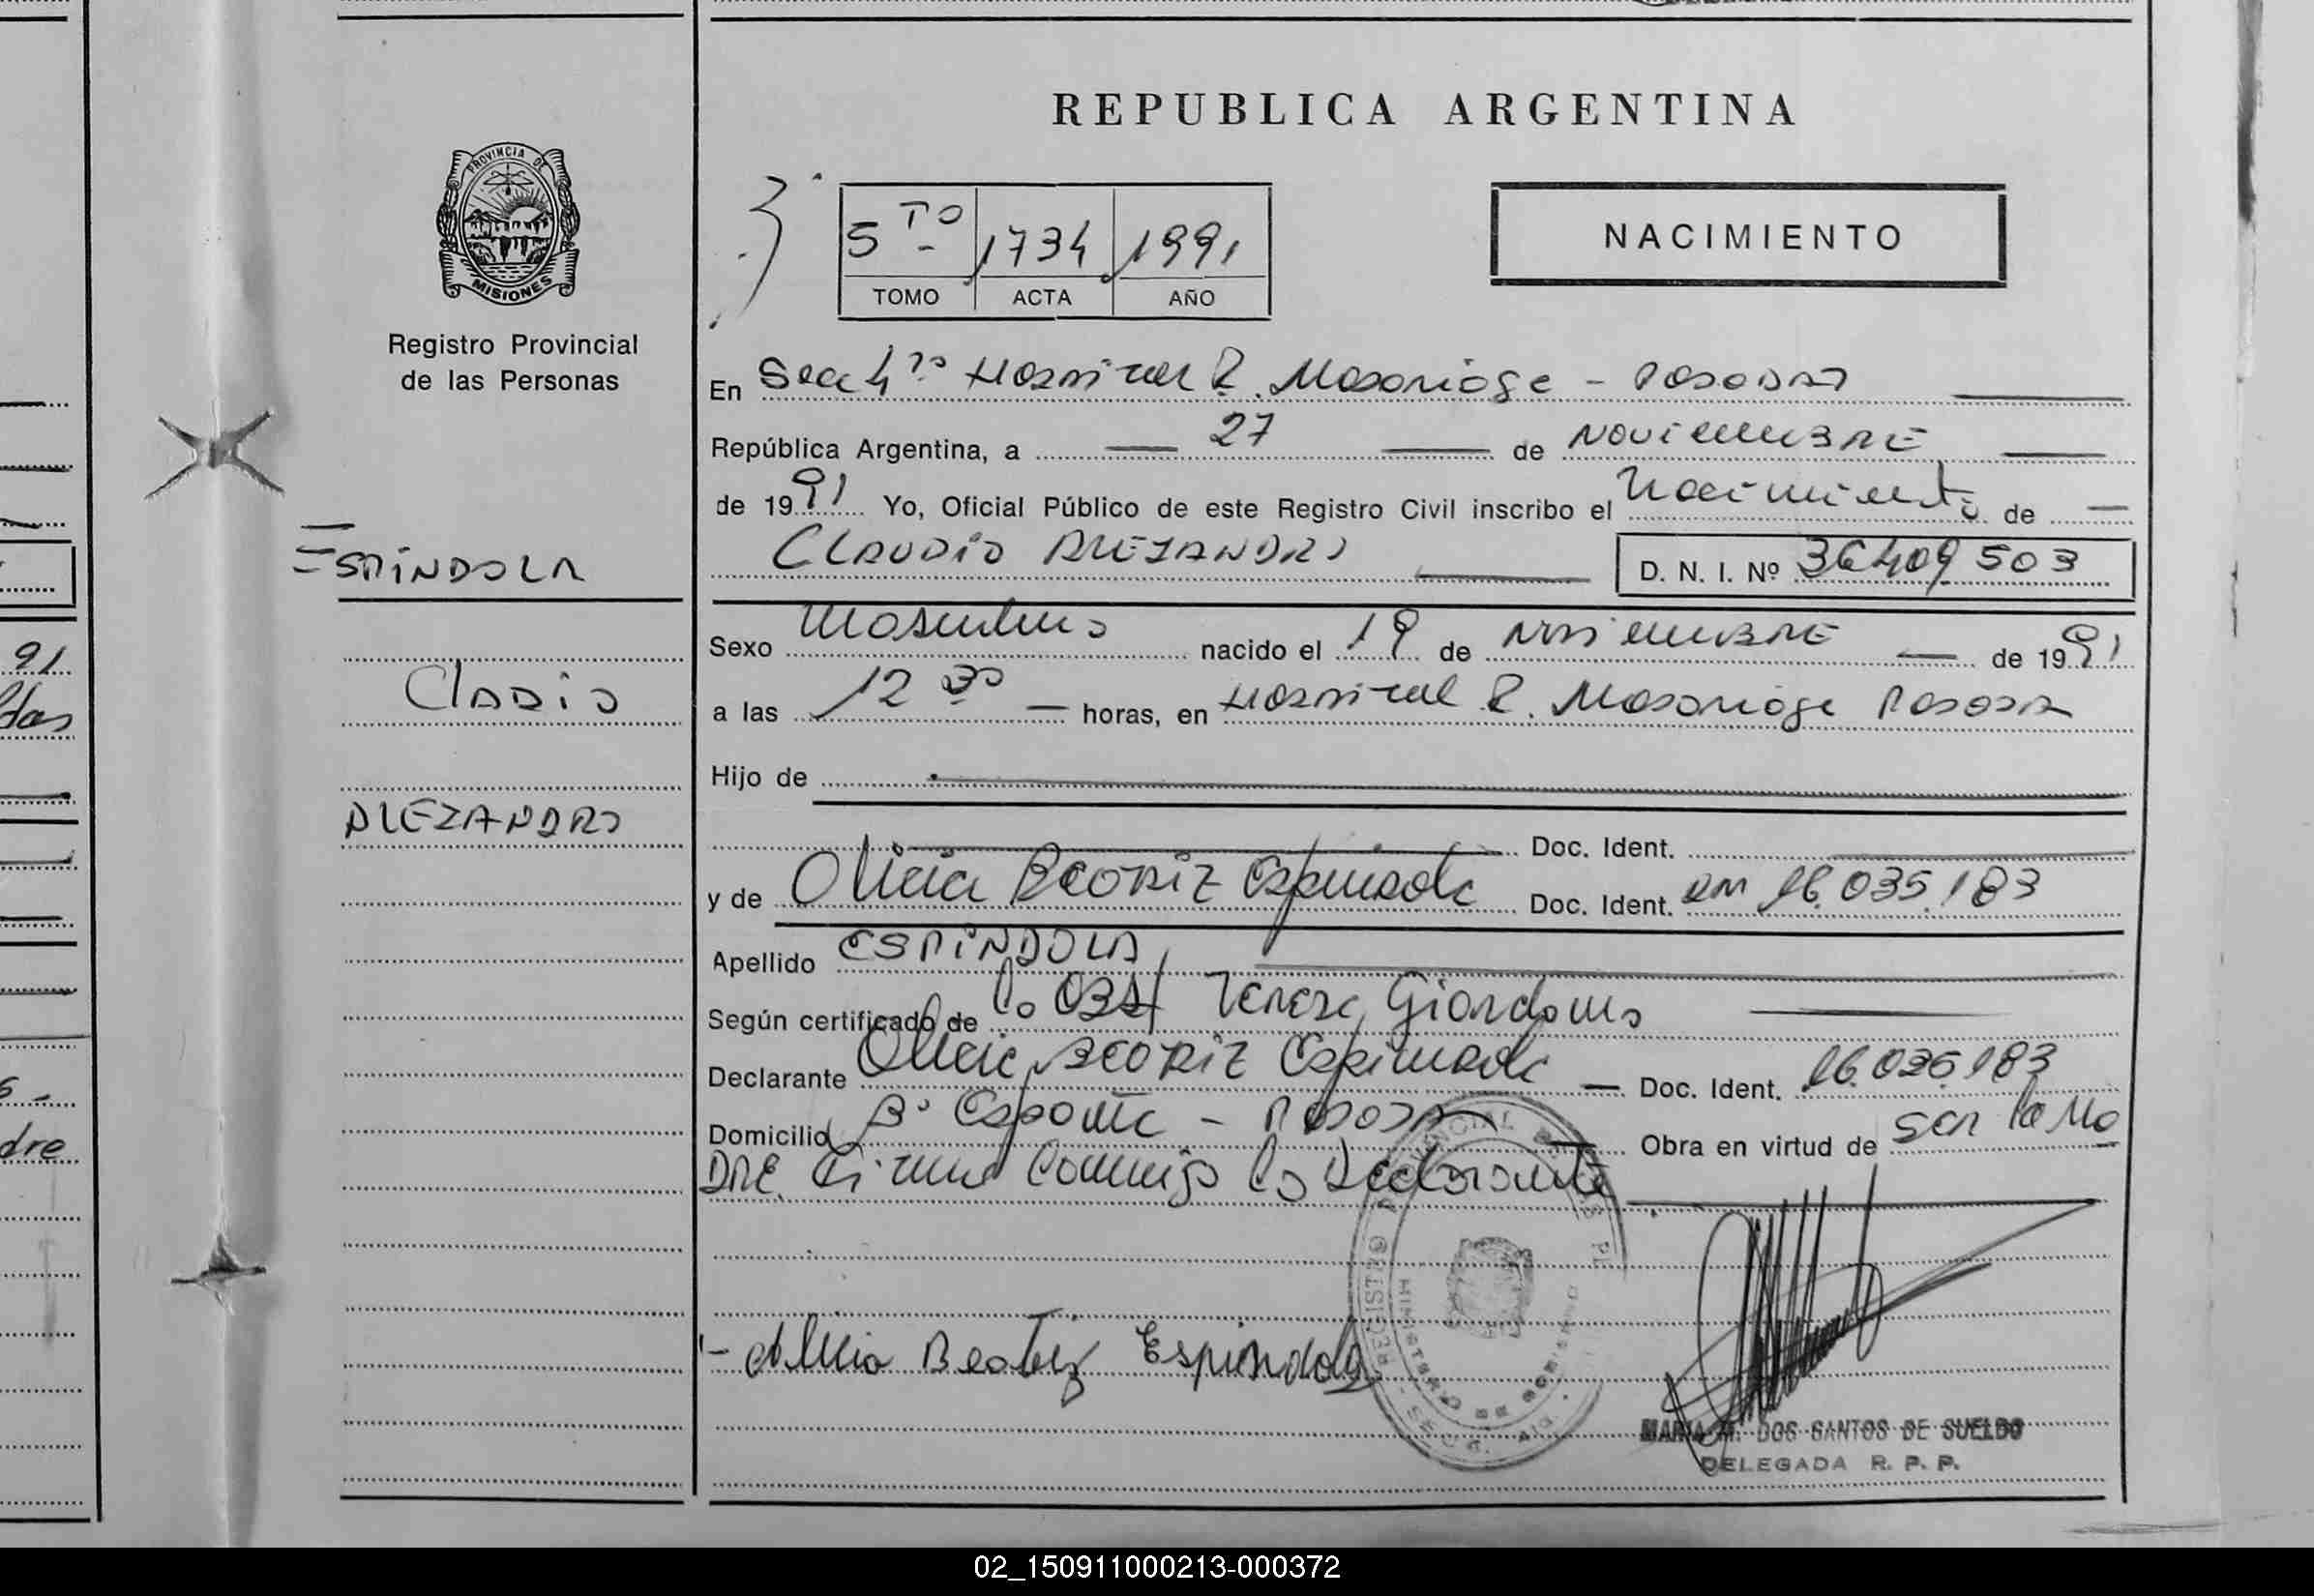 REPUBLICA ARGENTINA
PROVINCIA DE
MISIONES
Registro Provincial
de las Personas
5 TO 1734 1991
TOMO ACTA AÑO
NACIMIENTO
En Secc 4ta Hospital R. Madariaga - Posadas
República Argentina, a 27 de Noviembre
de 1991 Yo, Oficial Público de este Registro Civil inscribo el Nacimiento de
ESPINDOLA
CLAUDIO ALEJANDRO D. N. I. Nº 36409503
Sexo Masculino nacido el 19 de Noviembre de 1991
CLADIO
a las 12 30 horas, en Hospital R. Madariaga Posadas
Hijo de
ALEJANDRO
Doc. Ident.
y de Alicia Beatriz Espindola Doc. Ident. 16.035.183
Apellido ESPINDOLA
Según certificado de la Obst Teresa Giordano
Declarante Alicia Beatriz Espindola Doc. Ident. 16.035.183
Domicilio Bº - Posadas Obra en virtud de ser la Ma
DRE. Firma Conmigo la Declarante
REGISTRO PROVINCIAL
MINISTERIO DE GOBIERNO
- Alicia Beatriz Espindola
MARIA M. DOS SANTOS DE SUELDO
DELEGADA R. P. P.
91
das
dre
02_150911000213-000372